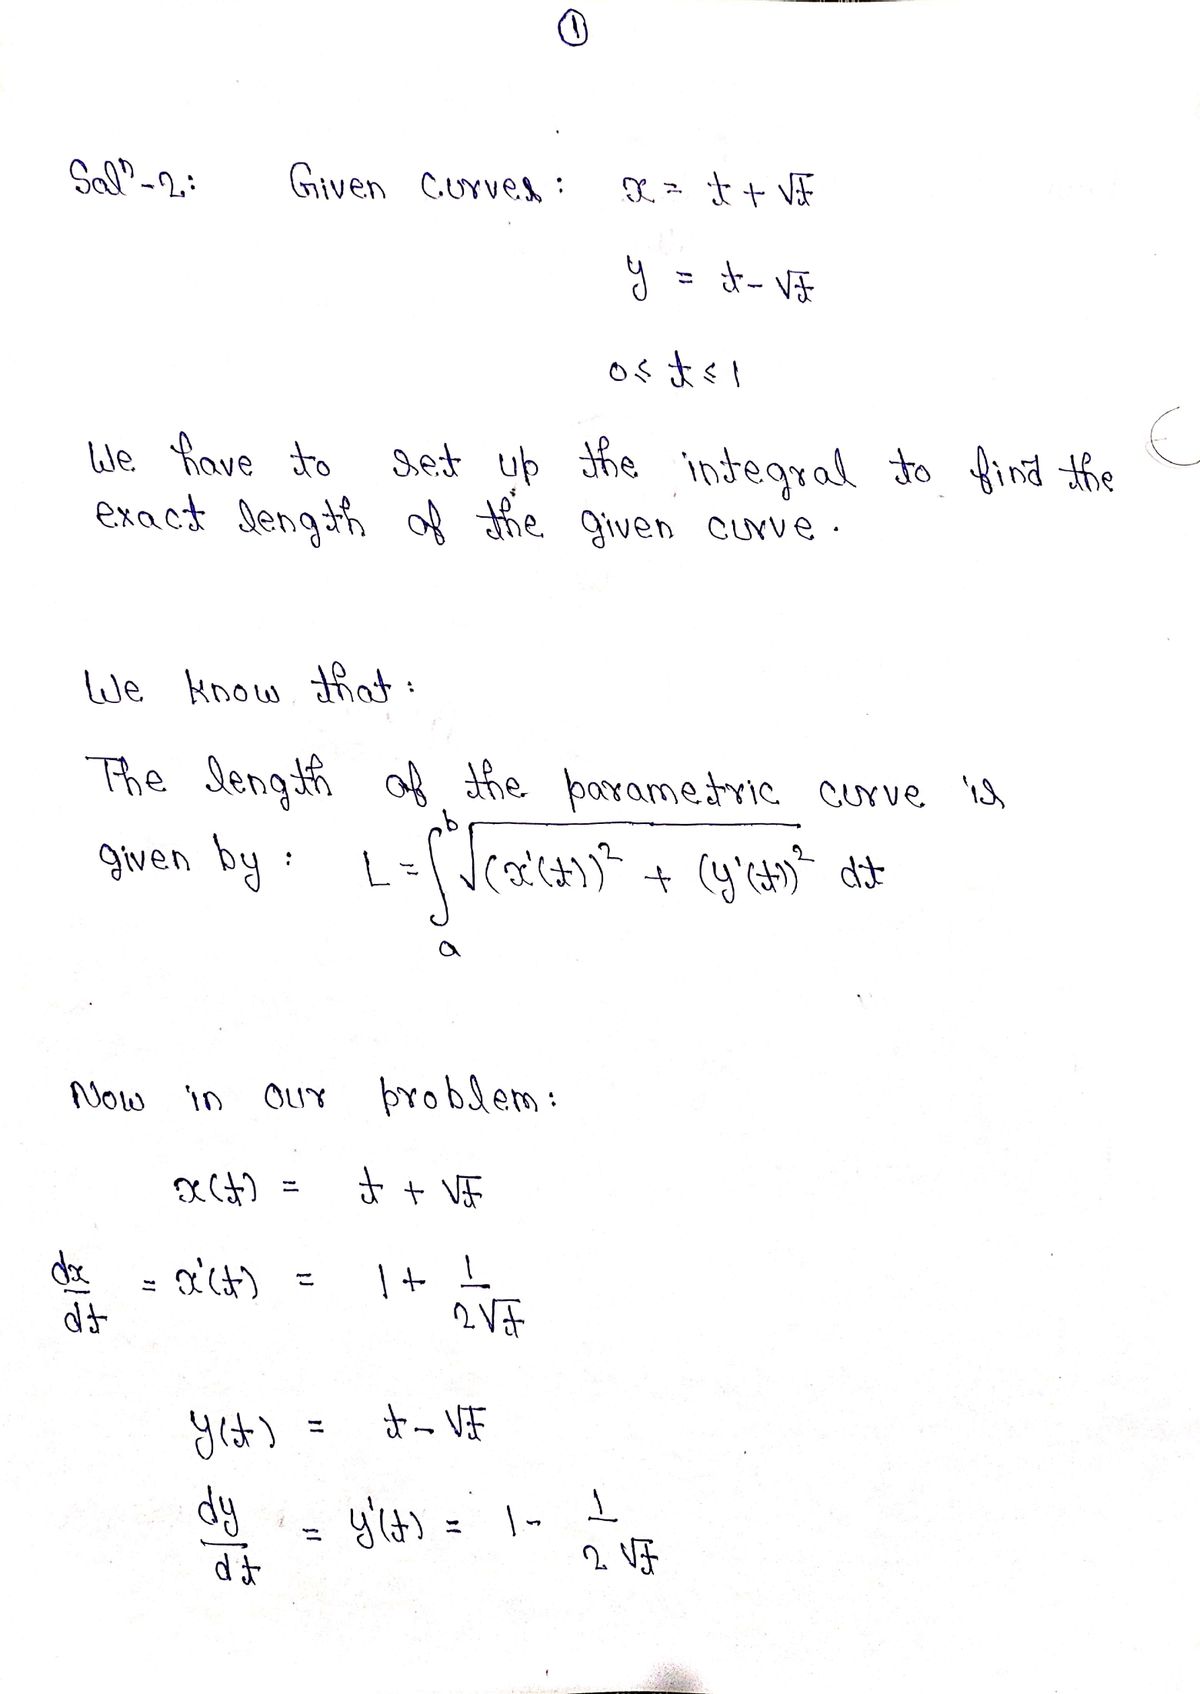 ①
Salⁿ-2: Given Curves: x = t + √t
y = t - √t
0 ≤ t ≤ 1
We have to set up the integral to find the
exact length of the given curve.
We know that:
The length of the parametric curve is
given by: L = ∫_a^b √((x'(t))² + (y'(t))²) dt
Now in our problem:
x(t) = t + √t
dx/dt = x'(t) = 1 + 1/(2√t)
y(t) = t - √t
dy/dt = y'(t) = 1 - 1/(2√t)